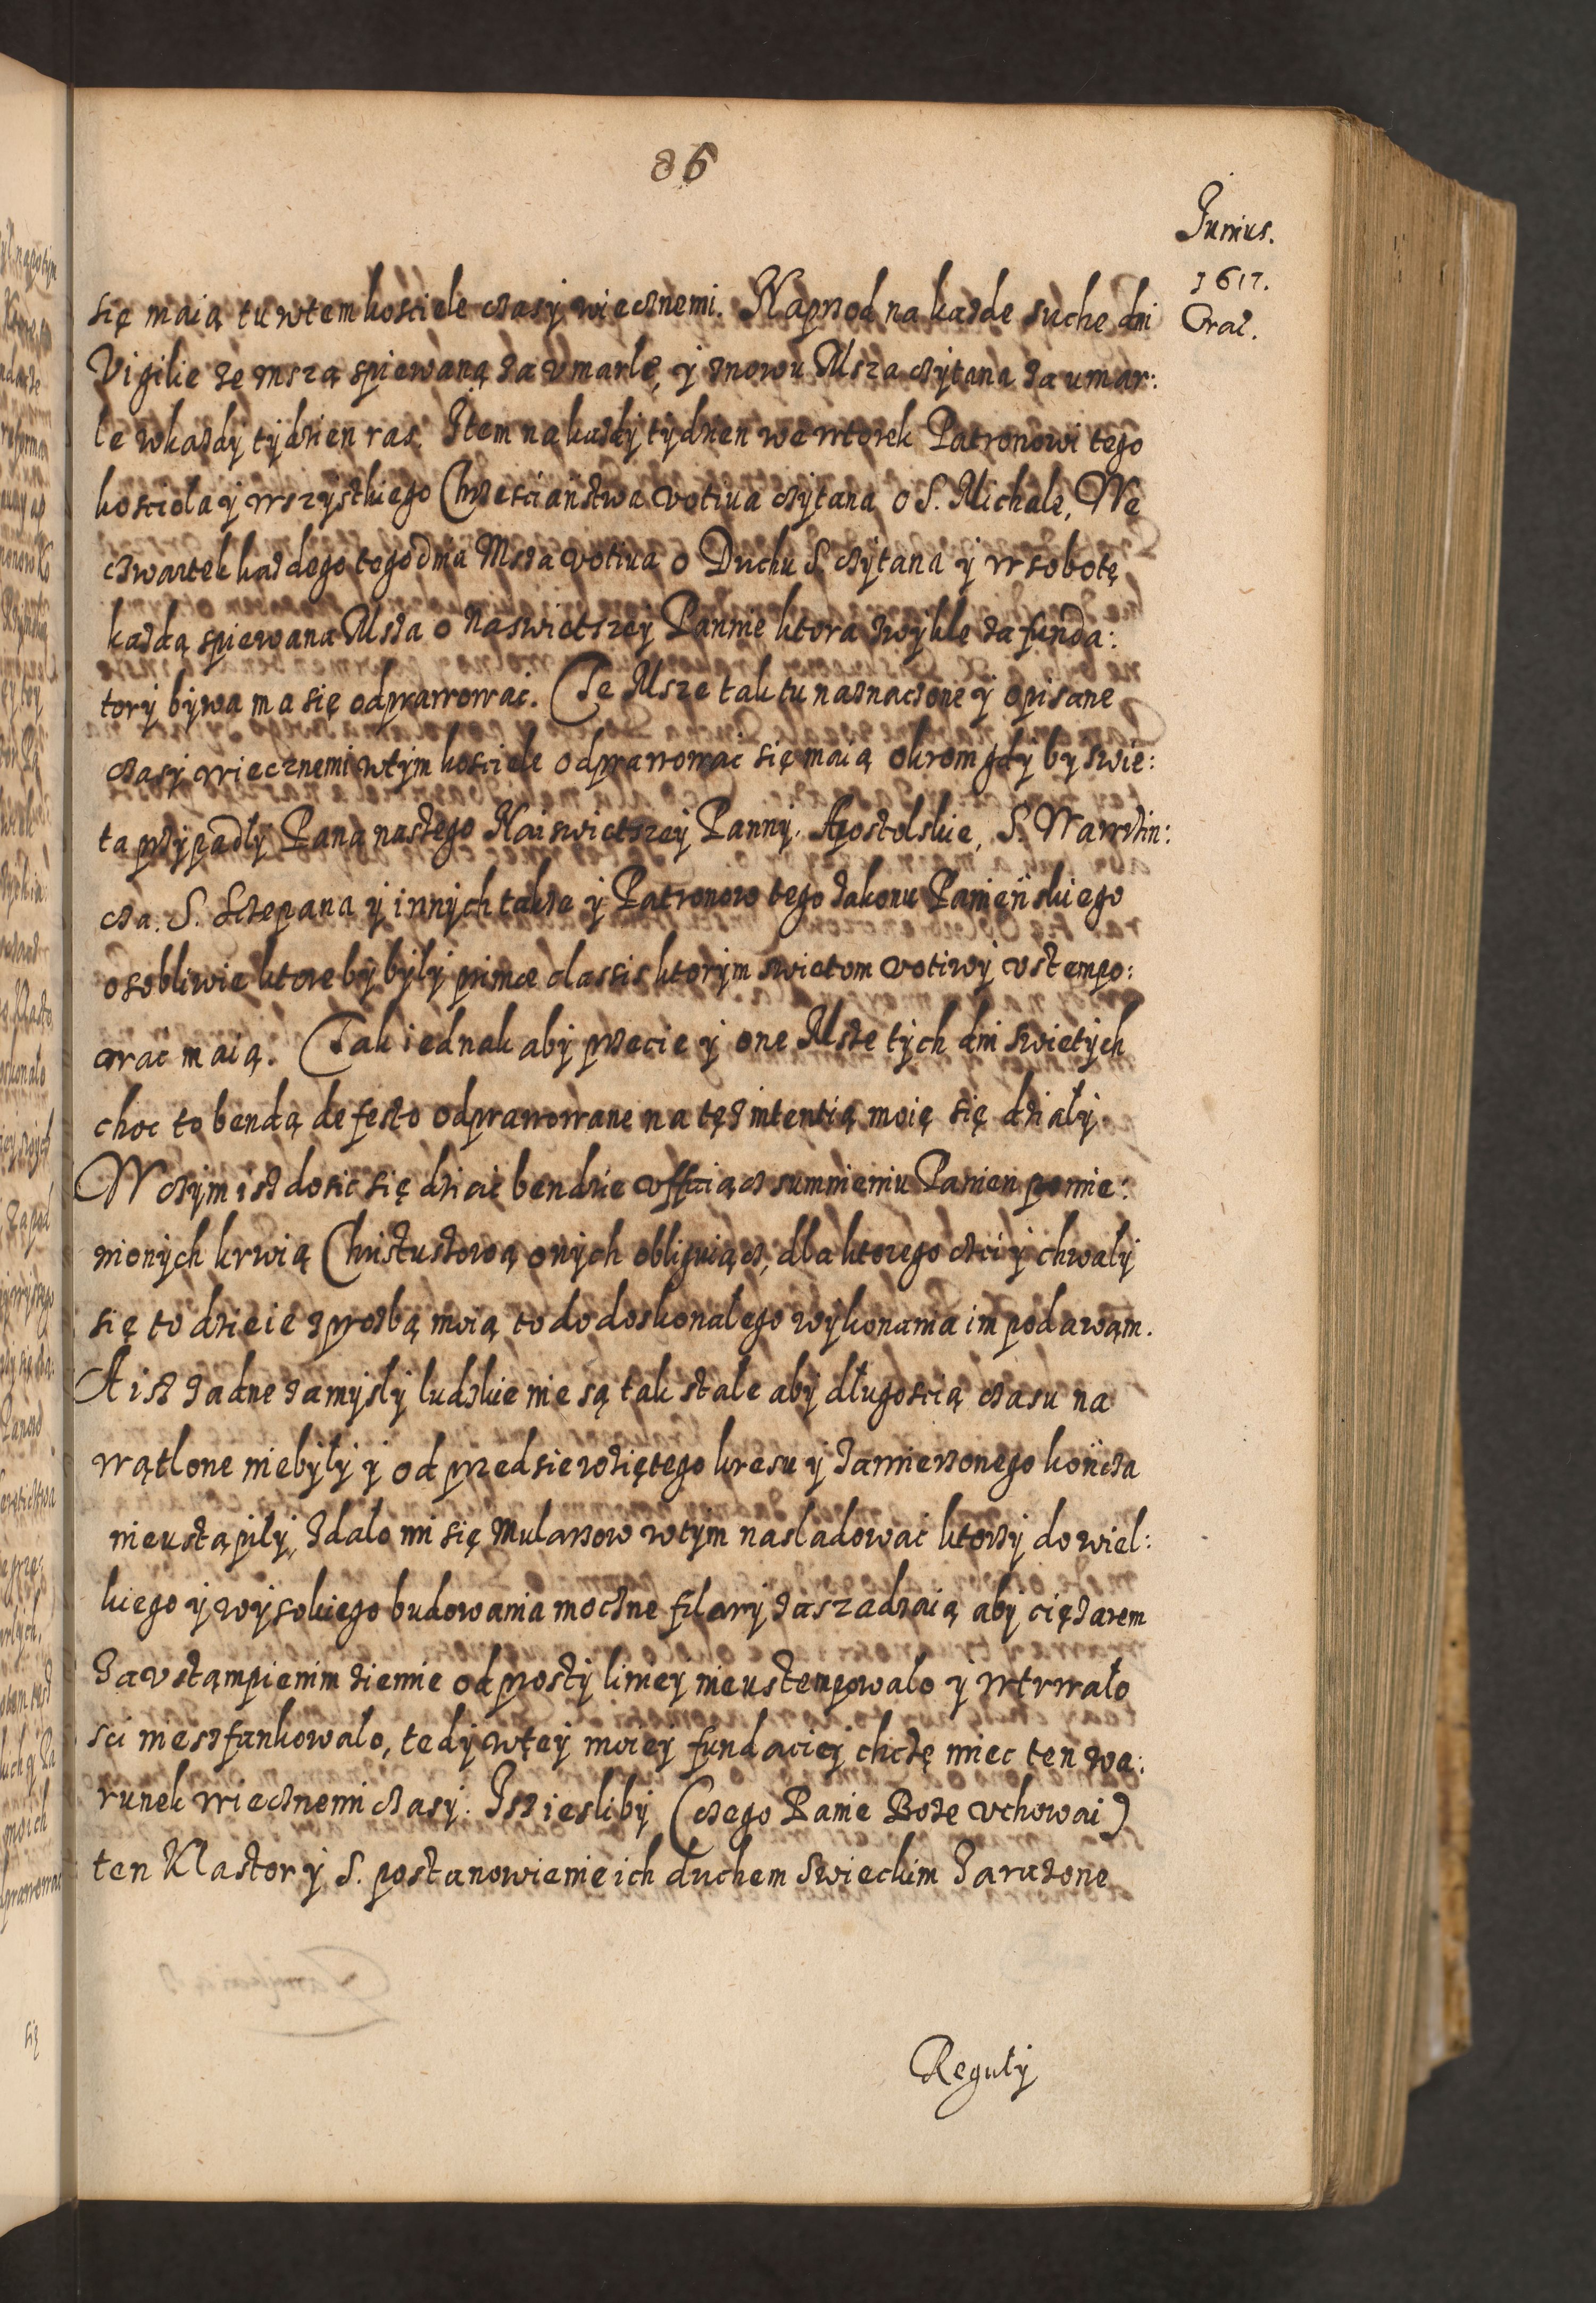 86
Junius.
1617.
Orat.
się maią tu wtem kosciele czasy wiecznemi. Naprzod na kazde suche dni
Vigilie ze mszą spiewaną za vmarłe, y znowu Msza czytana za umar:
łe wkazdy tydzien raz. Item na kazdy tydzien we wtorek Patronowi tego
kosciola y wszystkiego Chrzescianstwa votiua czytana o S. Michale, We
czwartek kazdego tegodnia Msza votiua o Duchu S. czytana y w sobotę
kazdą spiewana Msza o naswietszey Pannie ktora zwykle za funda:
tory bywa ma się odprawowac. Te Msze tak tu naznaczone y opisane
czasy wiecznemi wtym kosciele odprawowac się maią okrom gdy by swie:
ta przypadly Pana naszego Naiswietszey Panny. Apostolskie, S. Wawrzin:
cza. S. Sczepana y innych takze y Patronow tego Zakonu Panienskiego
osobliwie ktore by były primae classis ktorym swietom votiwy vstempo:
wac maią. Tak iednak aby przecie y one Msze tych dni swietych
choc to bendą de festo odprawowane na tęz intentią moię się działy.
W czym isz dosic się dziać bendzie vffaiącz sumnieniu Panien pomie:
nionych krwią Christusową onych obliguiącz, dla ktorego czci y chwały
się to dzieie z prozbą moią to do doskonałego wykonania im podawąm.
A isz zadne zamysły ludzkie nie są tak stałe aby długoscią czasu na
wątlone niebyły y od przedsiewziętego kresu y zamierzonego koncza
nieustąpiły, zdało mi się Mularzow wtym nasladować ktorzy do wiel:
kiego y wysokiego budowania moczne filary zaszadzaią aby ciężarem
Za vstąmpienim ziemie od prosty liniey nieustempowało y wtrwało
sci nieszfankowało, tedy wtey moiey fundaciej chczę miec ten wa:
runek wiecznemi czasy. Isz iesliby (czego Panie Boze vchowai)
ten Klasztor y S. postanowienie ich duchem Swieckim Zarazone
Reguły